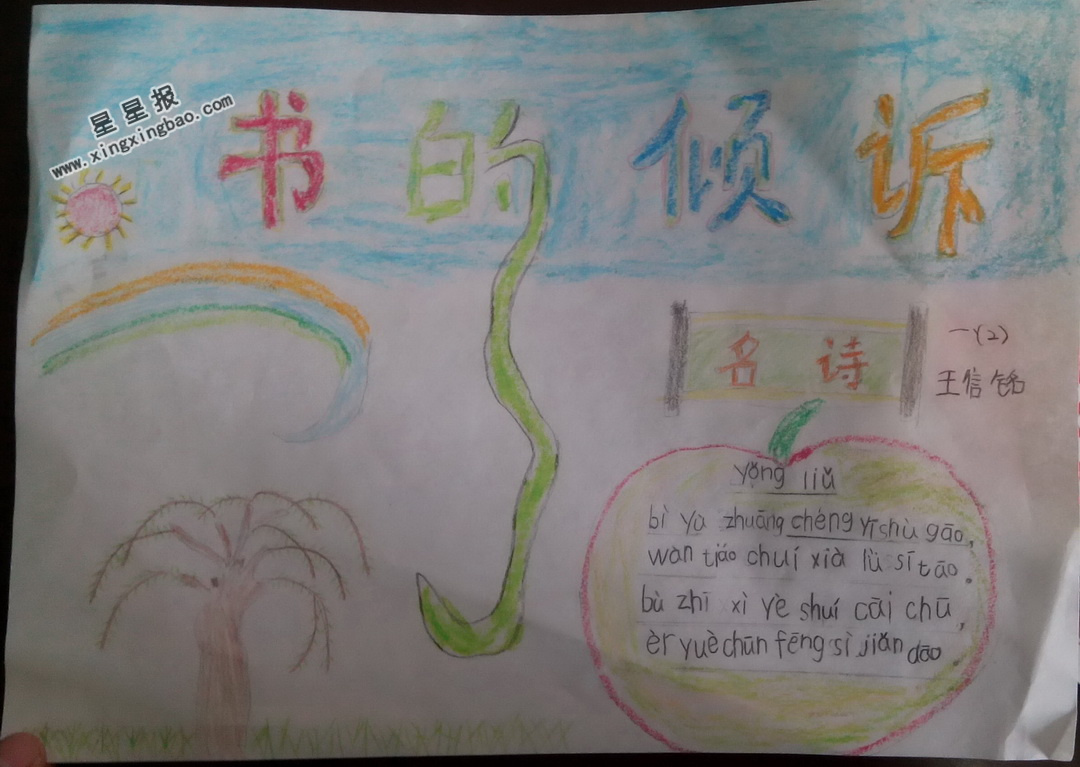 星星报
www.xingxingbao.com
书的倾诉
名诗
一(2)
王信铭
yǒng liǔ
bì yù zhuāng chéng yī shù gāo,
wàn tiáo chuí xià lǜ sī tāo.
bù zhī xì yè shuí cāi chū,
èr yuè chūn fēng sì jiǎn dāo.